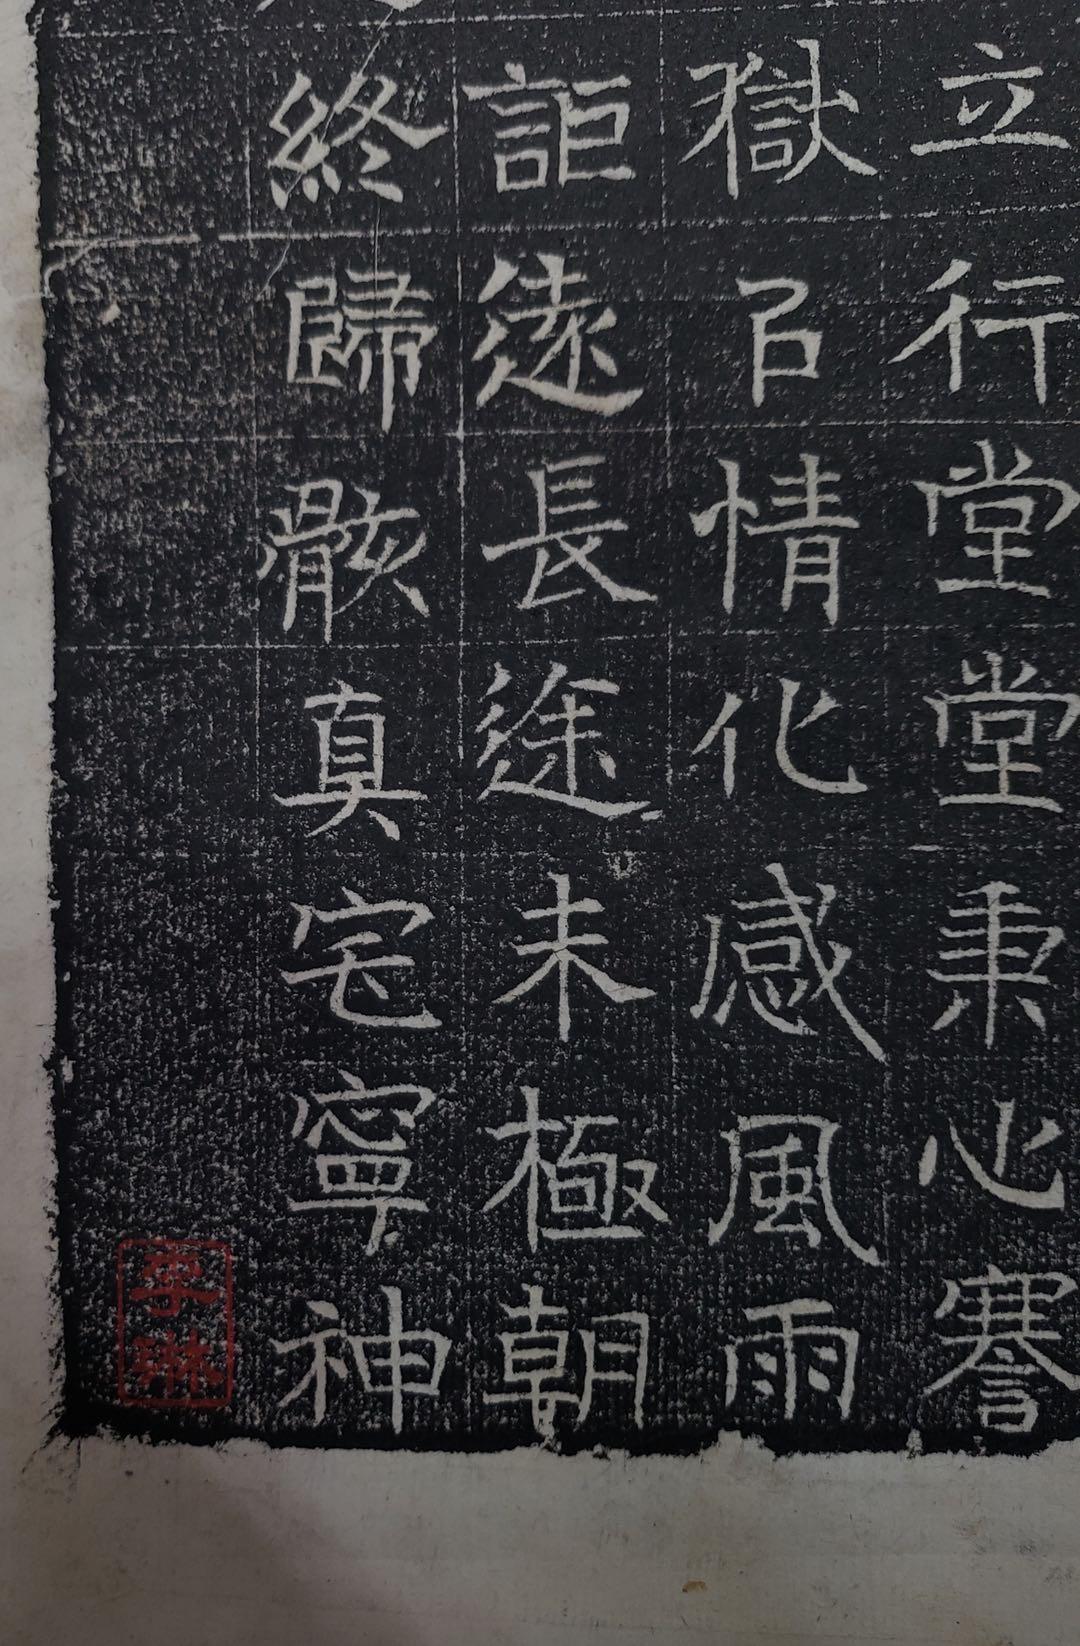 立行堂堂秉心謇
獄㠯情化感風雨
詎遠長途未極朝
終歸骸真宅寧神
李琳